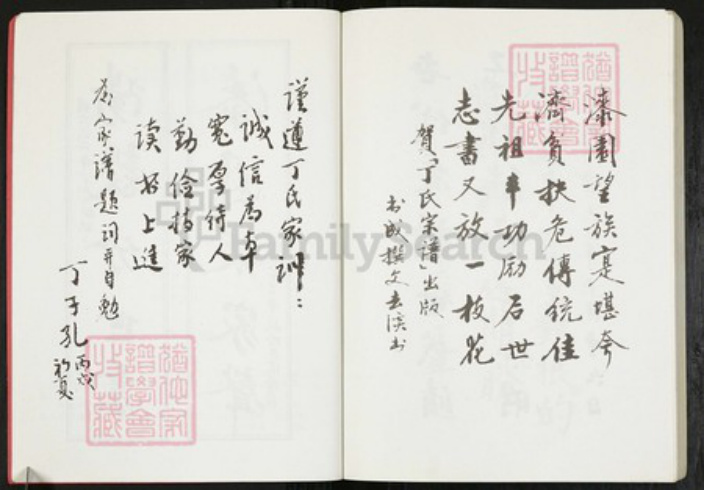 漆園望族寔堪夸
濟貧扶危傳統佳
先祖丰功励后世
志書又放一枝花
賀「丁氏宗譜」出版
謹遵丁氏家訓：
誠信為本
寬厚待人
勤俭持家
读书上進
為家譜題词并自勉
丁子孔
丙戌
初夏
FamilySearch